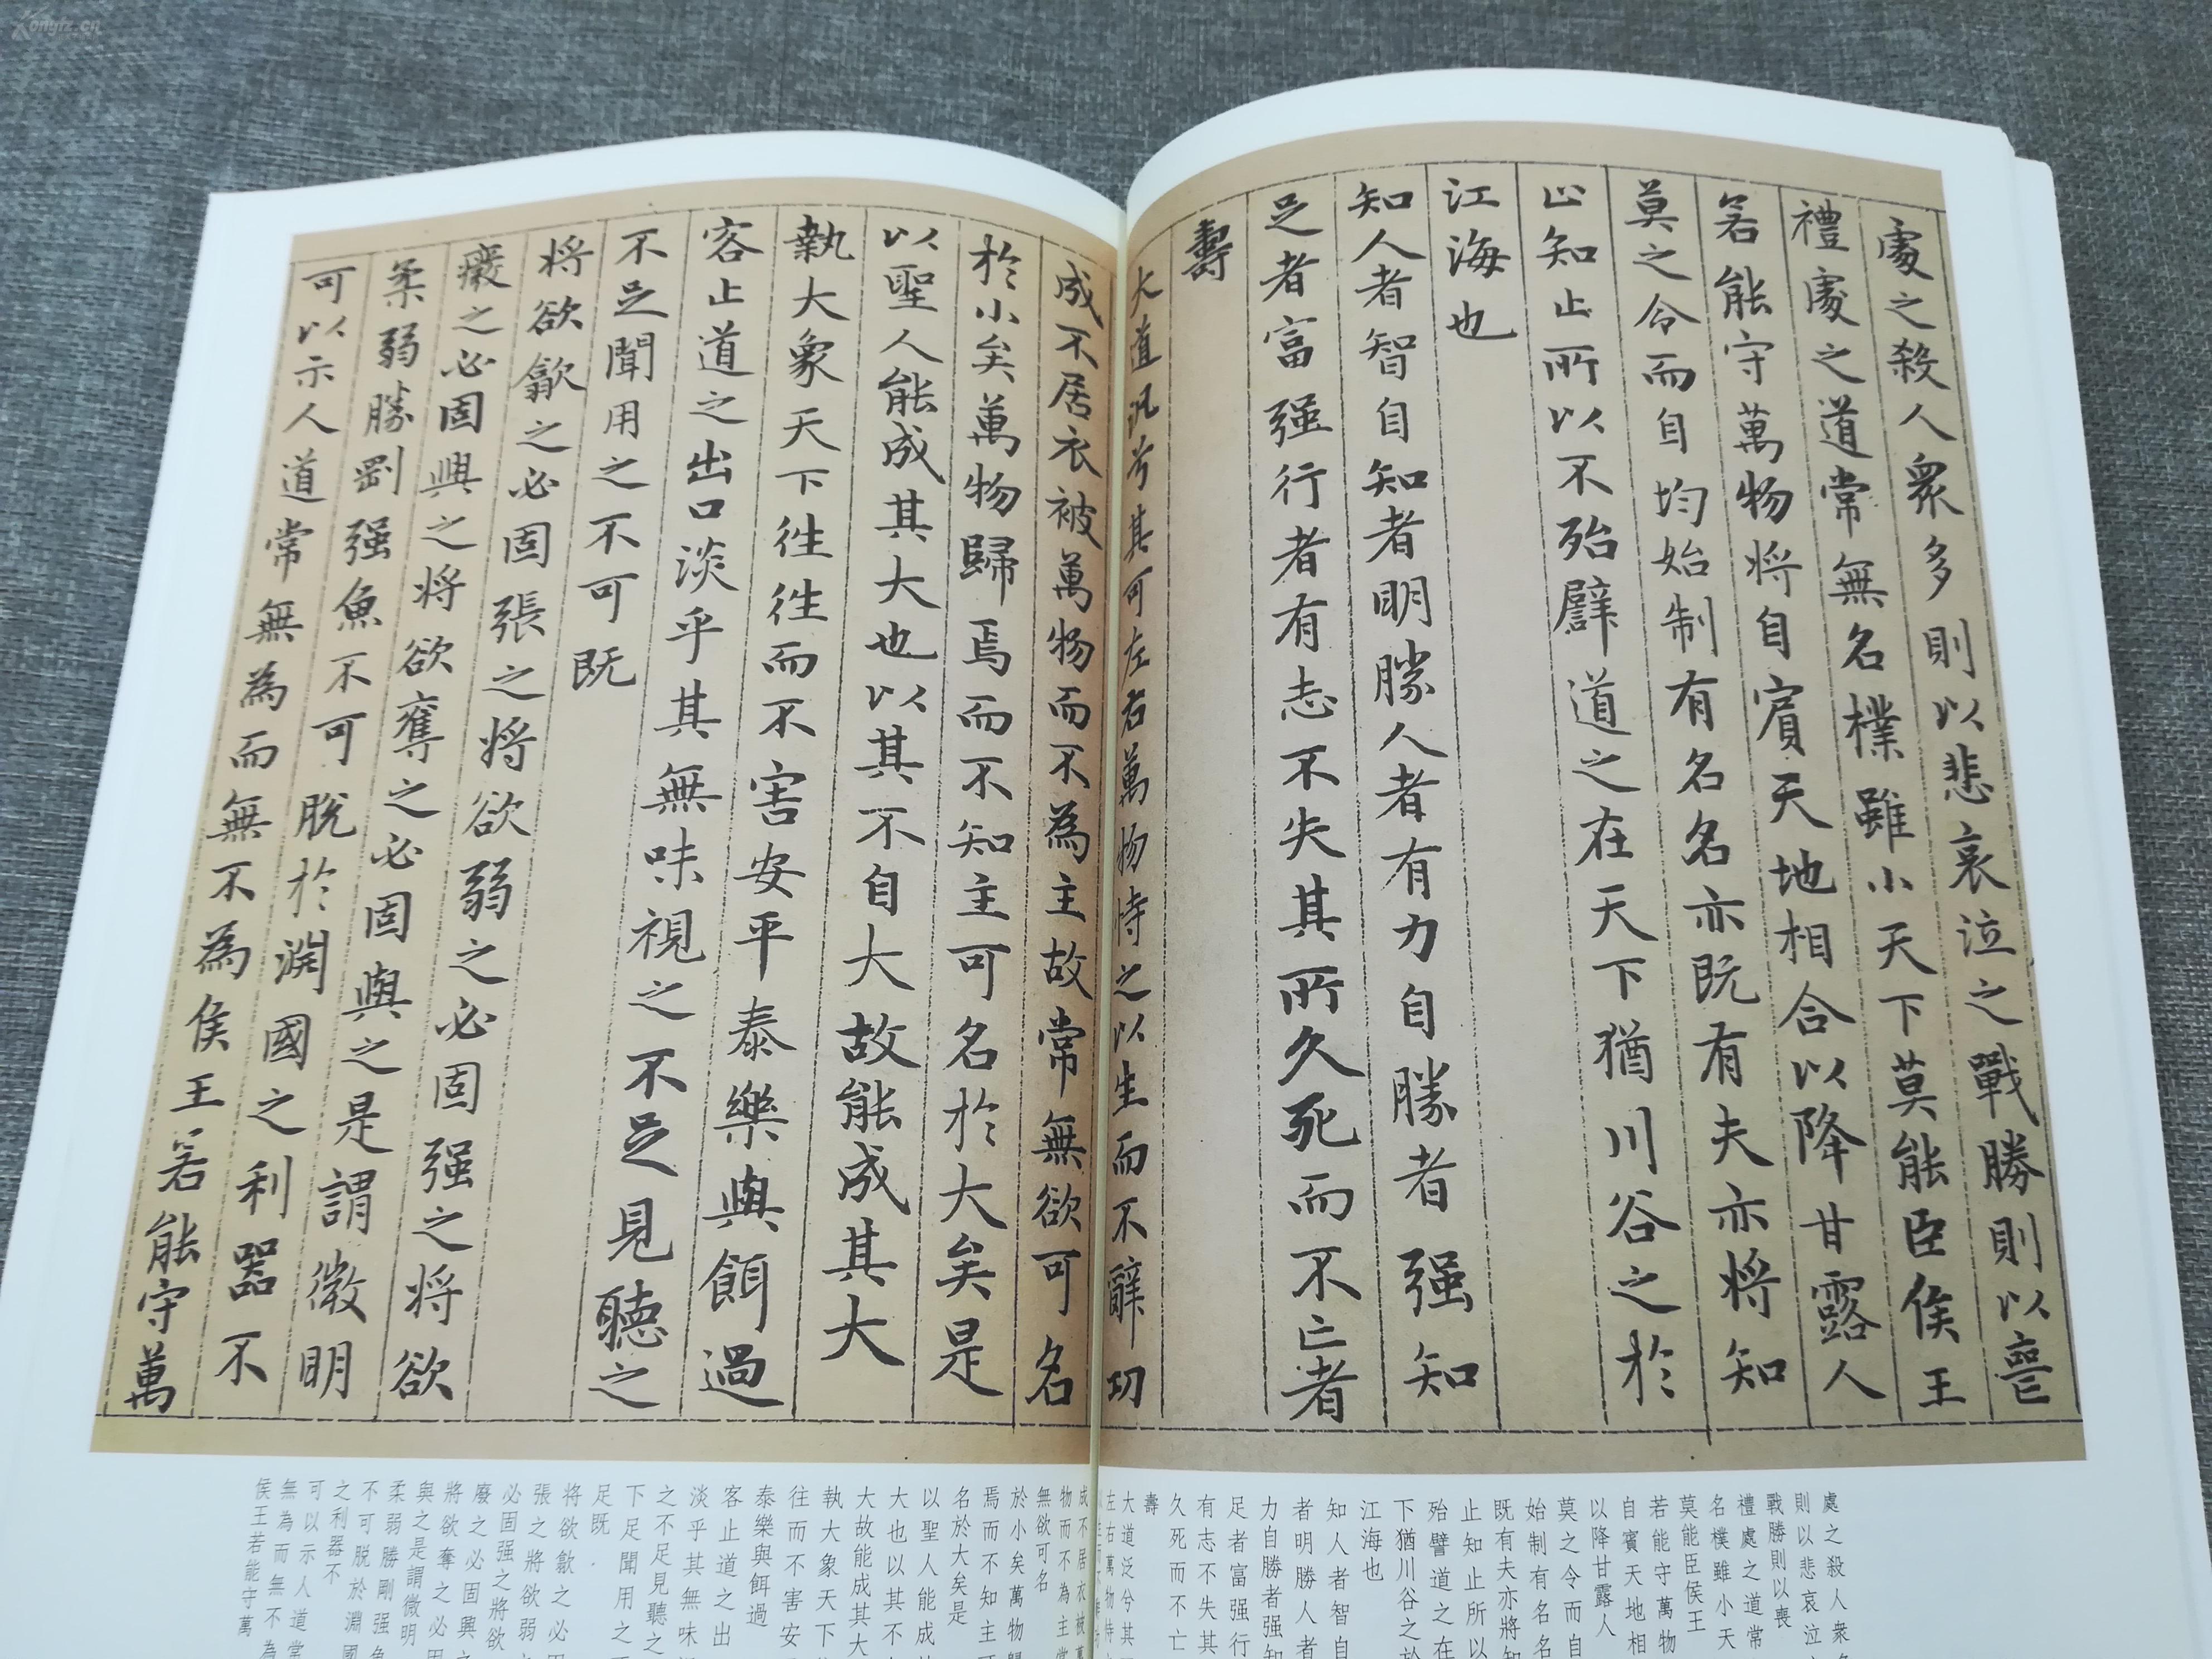 處之殺人衆多則以悲哀泣之戰勝則以喪
禮處之道常無名樸雖小天下莫能臣侯王
若能守萬物將自賓天地相合以降甘露人
莫之令而自均始制有名名亦既有夫亦將知
止知止所以不殆譬道之在天下猶川谷之於
江海也
知人者智自知者明勝人者有力自勝者强知
足者富强行者有志不失其所久死而不亡者
壽
大道汎兮其可左右萬物恃之以生而不辭功
成不居衣被萬物而不為主故常無欲可名
於小矣萬物歸焉而不知主可名於大矣是
以聖人能成其大也以其不自大故能成其大
執大象天下往往而不害安平泰樂與餌過
客止道之出口淡乎其無味視之不足見聽之
不足聞用之不可既
將欲歙之必固張之將欲弱之必固强之將欲
癈之必固興之將欲奪之必固與之是謂微明
柔弱勝剛强魚不可脫於淵國之利器不
可以示人道常無為而無不為侯王若能守萬
處之殺人衆
則以悲哀泣
戰勝則以喪
禮處之道常
名樸雖小天
莫能臣侯王
若能守萬物
自賓天地相
以降甘露人
莫之令而自
始制有名名
既有夫亦將知
止知止所以
殆譬道之在
下猶川谷之於
江海也
知人者智自
者明勝人者
力自勝者强知
足者富强行
有志不失其
久死而不亡
壽
大道泛兮其
左右萬物恃
成不居衣被萬
物而不為主常
無欲可名
於小矣萬物歸
焉而不知主可
名於大矣是
以聖人能成
大也以其不
大故能成其大
執大象天下
往而不害安
泰樂與餌過
客止道之出
淡乎其無味
之不足見聽之
下足聞用之
足既
將欲歙之必
張之將欲弱
必固强之將欲
廢之必固興
將欲奪之必
與之是謂微明
柔弱勝剛强
不可脫於淵國
之利器不
可以示人道常
無為而無不為
侯王若能守萬